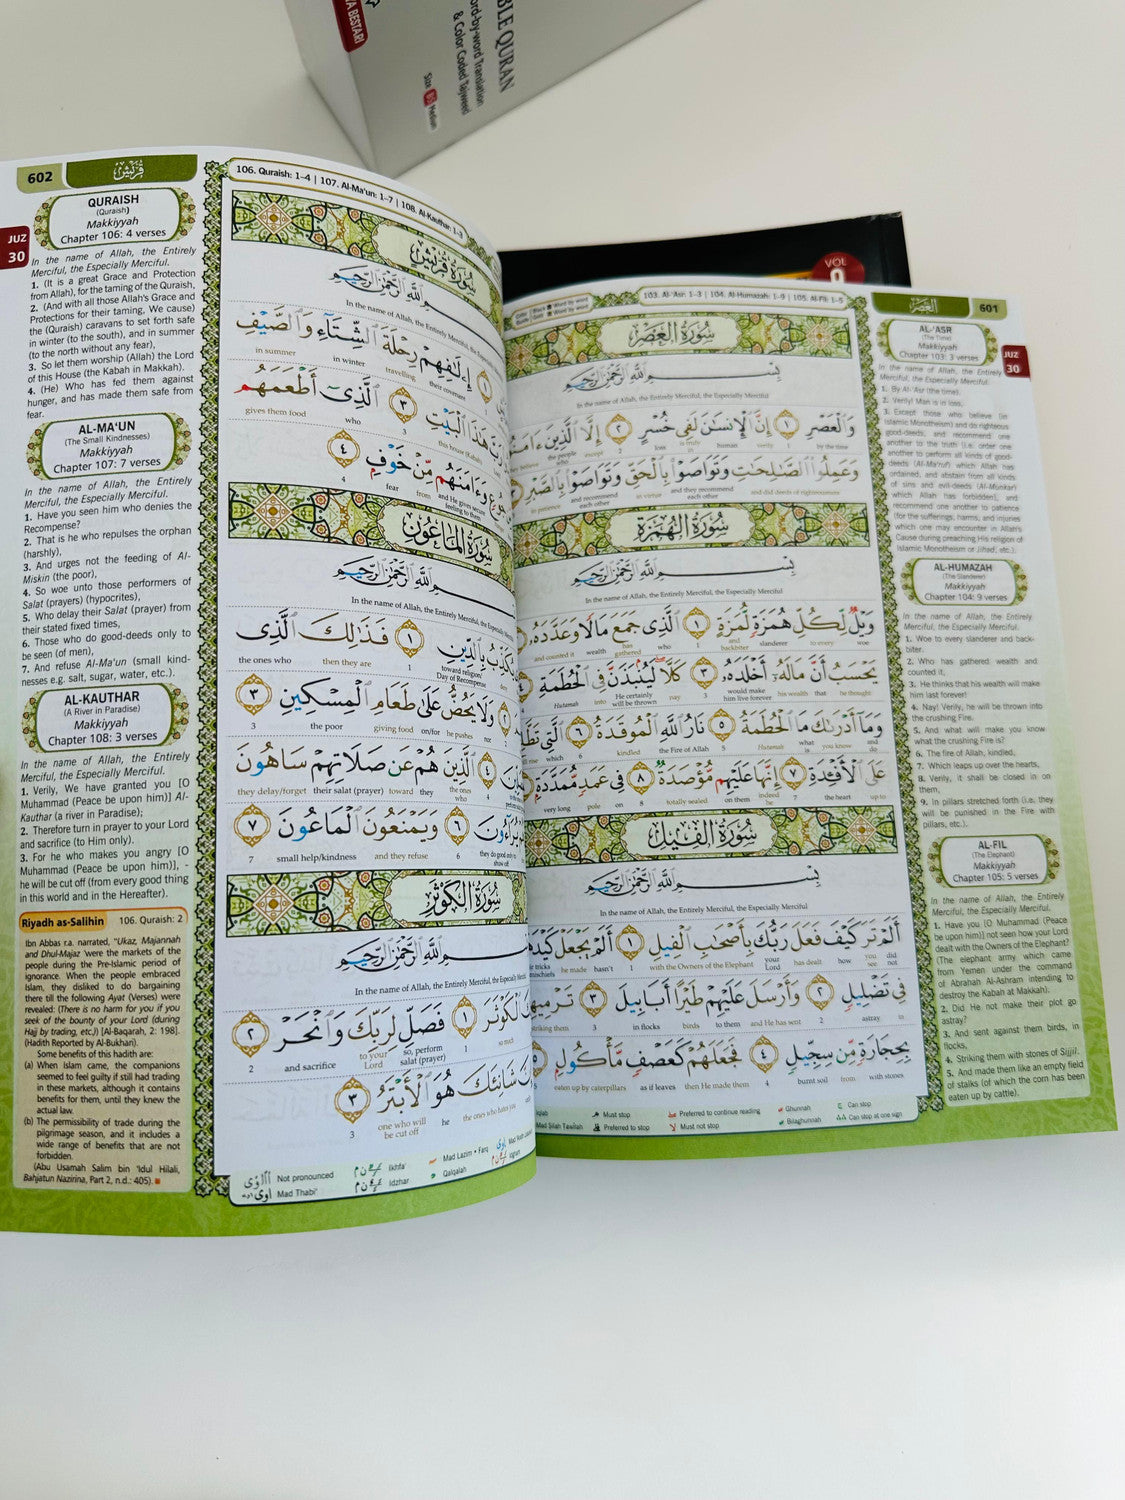 YA BESTARI
BLE QURAN
ord-by-word Translation
& Color Coded Tajweed
Size
Medium
VOL
9
602
قريش
QURAISH
(Quraish)
Makkiyyah
Chapter 106: 4 verses
JUZ
30
In the name of Allah, the Entirely
Merciful, the Especially Merciful.
1. (It is a great Grace and Protection
from Allah), for the taming of the Quraish,
2. (And with all those Allah's Grace and
Protections for their taming, We cause)
the (Quraish) caravans to set forth safe
in winter (to the south), and in summer
(to the north without any fear),
3. So let them worship (Allah) the Lord
of this House (the Kabah in Makkah).
4. (He) Who has fed them against
hunger, and has made them safe from
fear.
AL-MA'UN
(The Small Kindnesses)
Makkiyyah
Chapter 107: 7 verses
In the name of Allah, the Entirely
Merciful, the Especially Merciful.
1. Have you seen him who denies the
Recompense?
2. That is he who repulses the orphan
(harshly),
3. And urges not the feeding of Al-
Miskin (the poor),
4. So woe unto those performers of
Salat (prayers) (hypocrites),
5. Who delay their Salat (prayer) from
their stated fixed times,
6. Those who do good-deeds only to
be seen (of men),
7. And refuse Al-Ma'un (small kind-
nesses e.g. salt, sugar, water, etc.).
AL-KAUTHAR
(A River in Paradise)
Makkiyyah
Chapter 108: 3 verses
In the name of Allah, the Entirely
Merciful, the Especially Merciful.
1. Verily, We have granted you [O
Muhammad (Peace be upon him)] Al-
Kauthar (a river in Paradise);
2. Therefore turn in prayer to your Lord
and sacrifice (to Him only).
3. For he who makes you angry [O
Muhammad (Peace be upon him)], -
he will be cut off (from every good thing
in this world and in the Hereafter).
Riyadh as-Salihin 106. Quraish: 2
Ibn Abbas r.a. narrated, "Ukaz, Majannah
and Dhul-Majaz 'were the markets of the
people during the Pre-Islamic period of
ignorance. When the people embraced
Islam, they disliked to do bargaining
there till the following Ayat (Verses) were
revealed: (There is no harm for you if you
seek of the bounty of your Lord (during
Hajj by trading, etc,) [Al-Baqarah, 2: 198].
(Hadith Reported by Al-Bukhari).
Some benefits of this hadith are:
(a) When Islam came, the companions
seemed to feel guilty if still had trading
in these markets, although it contains
benefits for them, until they knew the
actual law.
(b) The permissibility of trade during the
pilgrimage season, and it includes a
wide range of benefits that are not
forbidden.
(Abu Usamah Salim bin 'Idul Hilali,
Bahjatun Nazirina, Part 2, n.d.: 405).
106. Quraish: 1–4 | 107. Al-Ma'un: 1–7 | 108. Al-Kauthar: 1–3
سُورَةُ قُرَيْشٍ
بِسْمِ اللَّهِ الرَّحْمَٰنِ الرَّحِيمِ
In the name of Allah, the Entirely Merciful, the Especially
١ إِۦلَٰفِهِمْ رِحْلَةَ ٱلشِّتَآءِ وَٱلصَّيْفِ
in summer in winter travelling their covenant 1
هَٰذَا ٱلْبَيْتِ ٣ ٱلَّذِىٓ أَطْعَمَهُم
gives them food who 3 this house (Kabah)
وَءَامَنَهُم مِّنْ خَوْفٍ ٤
4 fear from and He gives secure feeling to them
سُورَةُ الْمَاعُونَ
بِسْمِ اللَّهِ الرَّحْمَٰنِ الرَّحِيمِ
In the name of Allah, the Entirely Merciful, the Especially
يُكَذِّبُ بِٱلدِّينِ ١ فَذَٰلِكَ ٱلَّذِى
the ones who then they are 1 toward religion/ Day of Recompense
وَلَا يَحُضُّ عَلَىٰ طَعَامِ ٱلْمِسْكِينِ ٣
3 the poor giving food on/for he pushes not 2
٤ ٱلَّذِينَ هُمْ عَن صَلَاتِهِمْ سَاهُونَ
they delay/forget their salat (prayer) toward they the ones who 4
٦ وَيَمْنَعُونَ ٱلْمَاعُونَ ٧
7 small help/kindness and they refuse 6 they do good only to show off
سُورَةُ الْكَوْثَرِ
بِسْمِ اللَّهِ الرَّحْمَٰنِ الرَّحِيمِ
In the name of Allah, the Entirely Merciful, the Especially
ٱلْكَوْثَرَ ١ فَصَلِّ لِرَبِّكَ وَٱنْحَرْ ٢
2 and sacrifice to your Lord so, perform salat (prayer) 1
شَانِئَكَ هُوَ ٱلْأَبْتَرُ ٣
3 one who will be cut off he the ones who hates you
Not pronounced Ikhfa' Mad Lazim • Farq
Mad Thabi'i Idzhar Qalqalah Iqlab
103. Al-'Asr: 1–3 | 104. Al-Humazah: 1–9 | 105. Al-Fil: 1–5
سُورَةُ الْعَصْرِ
بِسْمِ اللَّهِ الرَّحْمَٰنِ الرَّحِيمِ
In the name of Allah, the Entirely Merciful, the Especially Merciful
وَٱلْعَصْرِ ١ إِنَّ ٱلْإِنسَٰنَ لَفِى خُسْرٍ ٢ إِلَّا ٱلَّذِينَ
the people who except 2 loss is truly human verily 1 by the time
وَعَمِلُوا۟ ٱلصَّٰلِحَٰتِ وَتَوَاصَوْا۟ بِٱلْحَقِّ وَتَوَاصَوْا۟ بِٱلصَّبْرِ ٣
in patience and recommend each other in virtue and they recommend each other and did deeds of righteousness
سُورَةُ الْهُمَزَةِ
بِسْمِ اللَّهِ الرَّحْمَٰنِ الرَّحِيمِ
In the name of Allah, the Entirely Merciful, the Especially Merciful
وَيْلٌ لِّكُلِّ هُمَزَةٍ لُّمَزَةٍ ١ ٱلَّذِى جَمَعَ مَالًا وَعَدَّدَهُۥ
and counted it wealth has gathered who 1 and backbiter slanderer to every woe
يَحْسَبُ أَنَّ مَالَهُۥٓ أَخْلَدَهُۥ ٣ كَلَّا لَيُنۢبَذَنَّ فِى ٱلْحُطَمَةِ ٤
Hutamah into He certainly will be thrown nay 3 would make him live forever his wealth that he thought
وَمَآ أَدْرَىٰكَ مَا ٱلْحُطَمَةُ ٥ نَارُ ٱللَّهِ ٱلْمُوقَدَةُ ٦ ٱلَّتِى
which 6 kindled the Fire of Allah 5 Hutamah what is you know and do
عَلَى ٱلْأَفْـِٔدَةِ ٧ إِنَّهَا عَلَيْهِم مُّؤْصَدَةٌ ٨ فِى عَمَدٍ مُّمَدَّدَةٍۭ
very long pole on 8 totally sealed on them indeed 7 the heart up to
سُورَةُ الْفِيلِ
بِسْمِ اللَّهِ الرَّحْمَٰنِ الرَّحِيمِ
In the name of Allah, the Entirely Merciful, the Especially Merciful
أَلَمْ تَرَ كَيْفَ فَعَلَ رَبُّكَ بِأَصْحَٰبِ ٱلْفِيلِ ١ أَلَمْ يَجْعَلْ
he made hasn't 1 with the Owners of the Elephant your Lord has dealt how you see did not
فِى تَضْلِيلٍ ٢ وَأَرْسَلَ عَلَيْهِمْ طَيْرًا أَبَابِيلَ ٣
striking them 3 in flocks birds to them and He was sent 2 astray in
بِحِجَارَةٍ مِّن سِجِّيلٍ ٤ فَجَعَلَهُمْ كَعَصْفٍ مَّأْكُولٍۭ ٥
eaten up by caterpillars as if leaves then He made them 4 burnt soil from with stones
Must stop Preferred to continue reading Ghunnah Can stop
Mad Silah Tawilah Preferred to stop Must not stop Bilaghunnah Can stop at one sign
العصر
601
AL-'ASR
(The Time)
Makkiyyah
Chapter 103: 3 verses
JUZ
30
In the name of Allah, the Entirely
Merciful, the Especially Merciful.
1. By Al-'Asr (the time).
2. Verily! Man is in loss,
3. Except those who believe (in
Islamic Monotheism) and do righteous
good-deeds, and recommend one
another to the truth (i.e. order one
another to perform all kinds of good-
deeds (Al-Ma'ruf) which Allah has
ordained, and abstain from all kinds
of sins and evil-deeds (Al-Munkar)
which Allah has forbidden), and
recommend one another to patience
(for the sufferings, harms, and injuries
which one may encounter in Allah's
Cause during preaching His religion of
Islamic Monotheism or Jihad, etc.).
AL-HUMAZAH
(The Slanderer)
Makkiyyah
Chapter 104: 9 verses
In the name of Allah, the Entirely
Merciful, the Especially Merciful.
1. Woe to every slanderer and back-
biter.
2. Who has gathered wealth and
counted it,
3. He thinks that his wealth will make
him last forever!
4. Nay! Verily, he will be thrown into
the crushing Fire.
5. And what will make you know
what the crushing Fire is?
6. The fire of Allah, kindled,
7. Which leaps up over the hearts,
8. Verily, it shall be closed in on
them,
9. In pillars stretched forth (i.e. they
will be punished in the Fire with
pillars, etc.).
AL-FIL
(The Elephant)
Makkiyyah
Chapter 105: 5 verses
In the name of Allah, the Entirely
Merciful, the Especially Merciful.
1. Have you [O Muhammad (Peace
be upon him)] not seen how your Lord
dealt with the Owners of the Elephant?
(The elephant army which came
from Yemen under the command
of Abrahah Al-Ashram intending to
destroy the Kabah at Makkah).
2. Did He not make their plot go
astray?
3. And sent against them birds, in
flocks,
4. Striking them with stones of Sijjil.
5. And made them like an empty field
of stalks (of which the corn has been
eaten up by cattle).